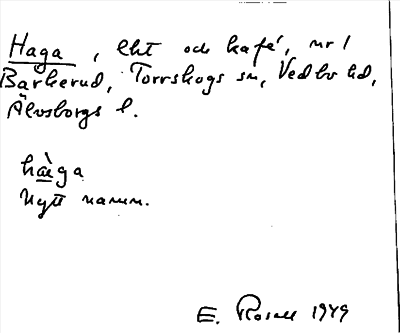 Haga, lht och kafé, nr 1
Barkerud, Torrskogs sn, Vedbo hd,
Älvsborgs l.
hàga
Nytt namn.
E. Rosell 1949